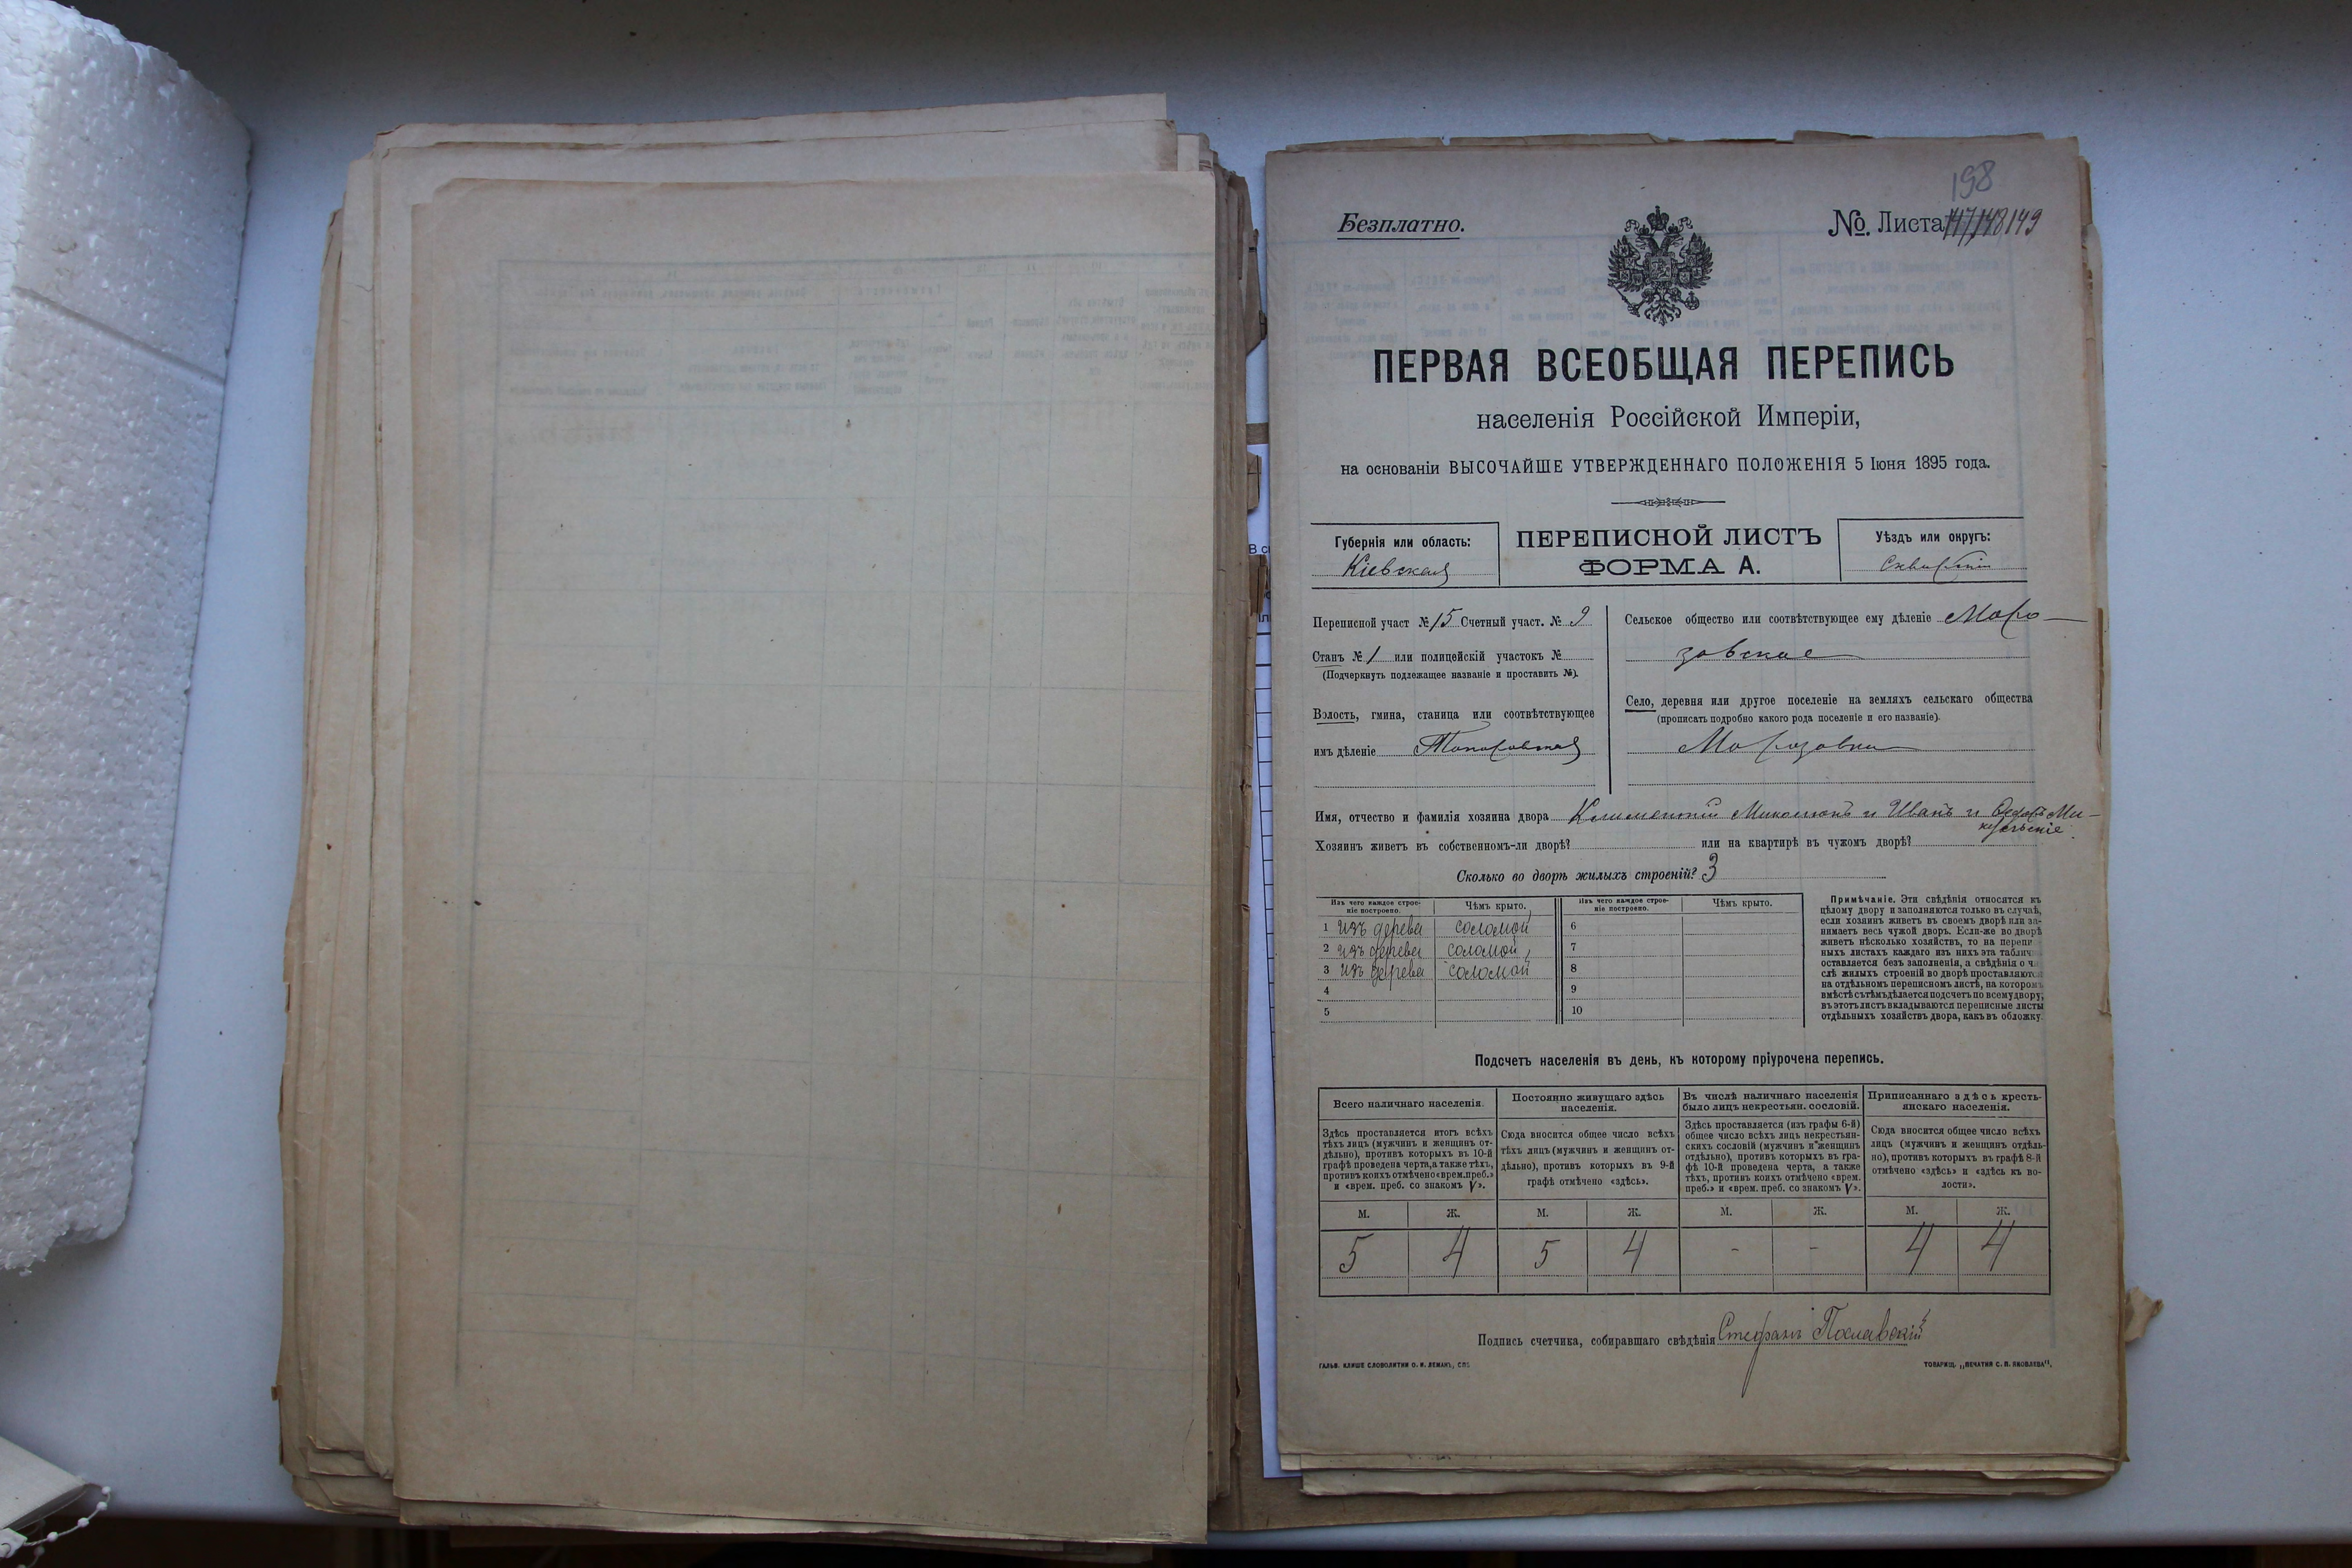 198
Безплатно.
№. Листа 147,148 149
ПЕРВАЯ ВСЕОБЩАЯ ПЕРЕПИСЬ
населенія Россійской Имперіи,
на основаніи ВЫСОЧАЙШЕ УТВЕРЖДЕННАГО ПОЛОЖЕНІЯ 5 Іюня 1895 года.
Губернія или область:
Кіевская
ПЕРЕПИСНОЙ ЛИСТЪ
ФОРМА А.
Уѣздъ или округъ:
Сквирскій
Переписной участ № 15 Счетный участ. № 9
Станъ № 1 или полицейскій участокъ №
(Подчеркнуть подлежащее названіе и проставить №).
Волость, гмина, станица или соотвѣтствующее
имъ дѣленіе Топоровская
Сельское общество или соотвѣтствующее ему дѣленіе Моро-
зовское
Село, деревня или другое поселеніе на земляхъ сельскаго общества
(прописать подробно какого рода поселеніе и его названіе).
Морозовка
Имя, отчество и фамилія хозяина двора Климентій и Иванъ и
Хозяинъ живетъ въ собственномъ-ли дворѣ? или на квартирѣ въ чужомъ дворѣ?
Сколько во дворѣ жилыхъ строеній? 3
Изъ чего каждое строе-
ніе построено.
Чѣмъ крыто.
1 изъ дерева соломой
2 изъ дерева соломой
3 изъ дерева соломой
4
5
Изъ чего каждое строе-
ніе построено.
Чѣмъ крыто.
6
7
8
9
10
Примѣчаніе. Эти свѣдѣнія относятся къ
цѣлому двору и заполняются только въ случаѣ,
если хозяинъ живетъ въ своемъ дворѣ или за-
нимаетъ весь чужой дворъ. Если-же во дворѣ
живетъ нѣсколько хозяйствъ, то на перепи
ныхъ листахъ каждаго изъ нихъ эта таблич
оставляется безъ заполненія, а свѣдѣнія о чи
слѣ жилыхъ строеній во дворѣ проставляются
на отдѣльномъ переписномъ листѣ, на которомъ
вмѣстѣ съ тѣмъ дѣлается подсчетъ по всему двору;
въ этотъ листъ вкладываются переписные листы
отдѣльныхъ хозяйствъ двора, какъ въ обложку.
Подсчетъ населенія въ день, къ которому пріурочена перепись.
Всего наличнаго населенія.
Здѣсь проставляется итогъ всѣхъ
тѣхъ лицъ (мужчинъ и женщинъ от-
дѣльно), противъ которыхъ въ 10-й
графѣ проведена черта, а также тѣхъ,
противъ коихъ отмѣчено «врем. преб.»
и «врем. преб. со знакомъ V».
Постоянно живущаго здѣсь
населенія.
Сюда вносится общее число всѣхъ
тѣхъ лицъ (мужчинъ и женщинъ от-
дѣльно), противъ которыхъ въ 9-й
графѣ отмѣчено «здѣсь».
Въ числѣ наличнаго населенія
было лицъ некрестьян. сословій.
Здѣсь проставляется (изъ графы 6-й)
общее число всѣхъ лицъ некрестьян-
скихъ сословій (мужчинъ и женщинъ
отдѣльно), противъ которыхъ въ гра-
фѣ 10-й проведена черта, а также
тѣхъ, противъ коихъ отмѣчено «врем.
преб.» и «врем. преб. со знакомъ V».
Приписаннаго здѣсь кресть-
янскаго населенія.
Сюда вносится общее число всѣхъ
лицъ (мужчинъ и женщинъ отдѣль-
но), противъ которыхъ въ графѣ 8-й
отмѣчено «здѣсь» и «здѣсь къ во-
лости».
М. Ж. М. Ж. М. Ж. М. Ж.
5 4 5 4 - - 4 4
Подпись счетчика, собиравшаго свѣдѣнія Стефанъ Пославскій
ГАЛЬВ. КЛИШЕ СЛОВОЛИТНИ О. И. ЛЕМАНЪ, СПБ
ТОВАРИЩ. „ПЕЧАТНЯ С. П. ЯКОВЛЕВА".